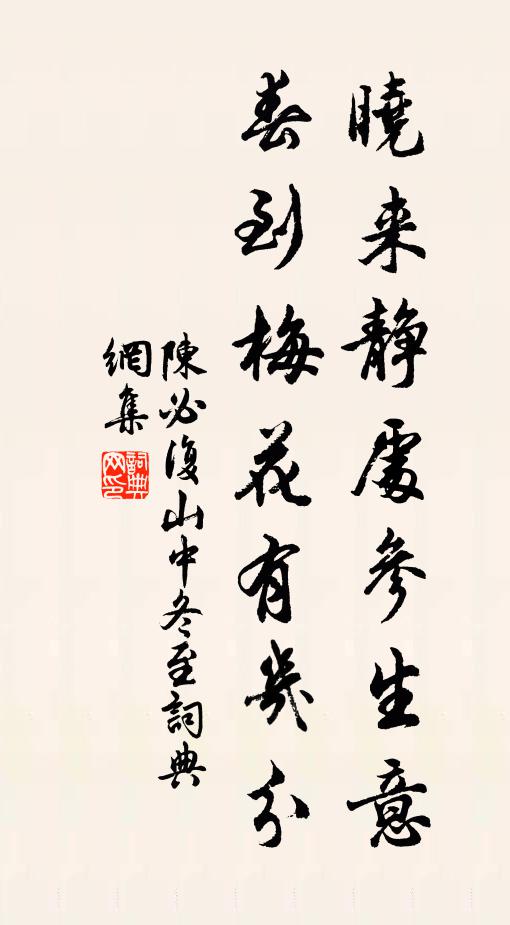 曉来靜處參生意
春到梅花有幾分
陳必復山中冬至詞典
網集
詞典網印